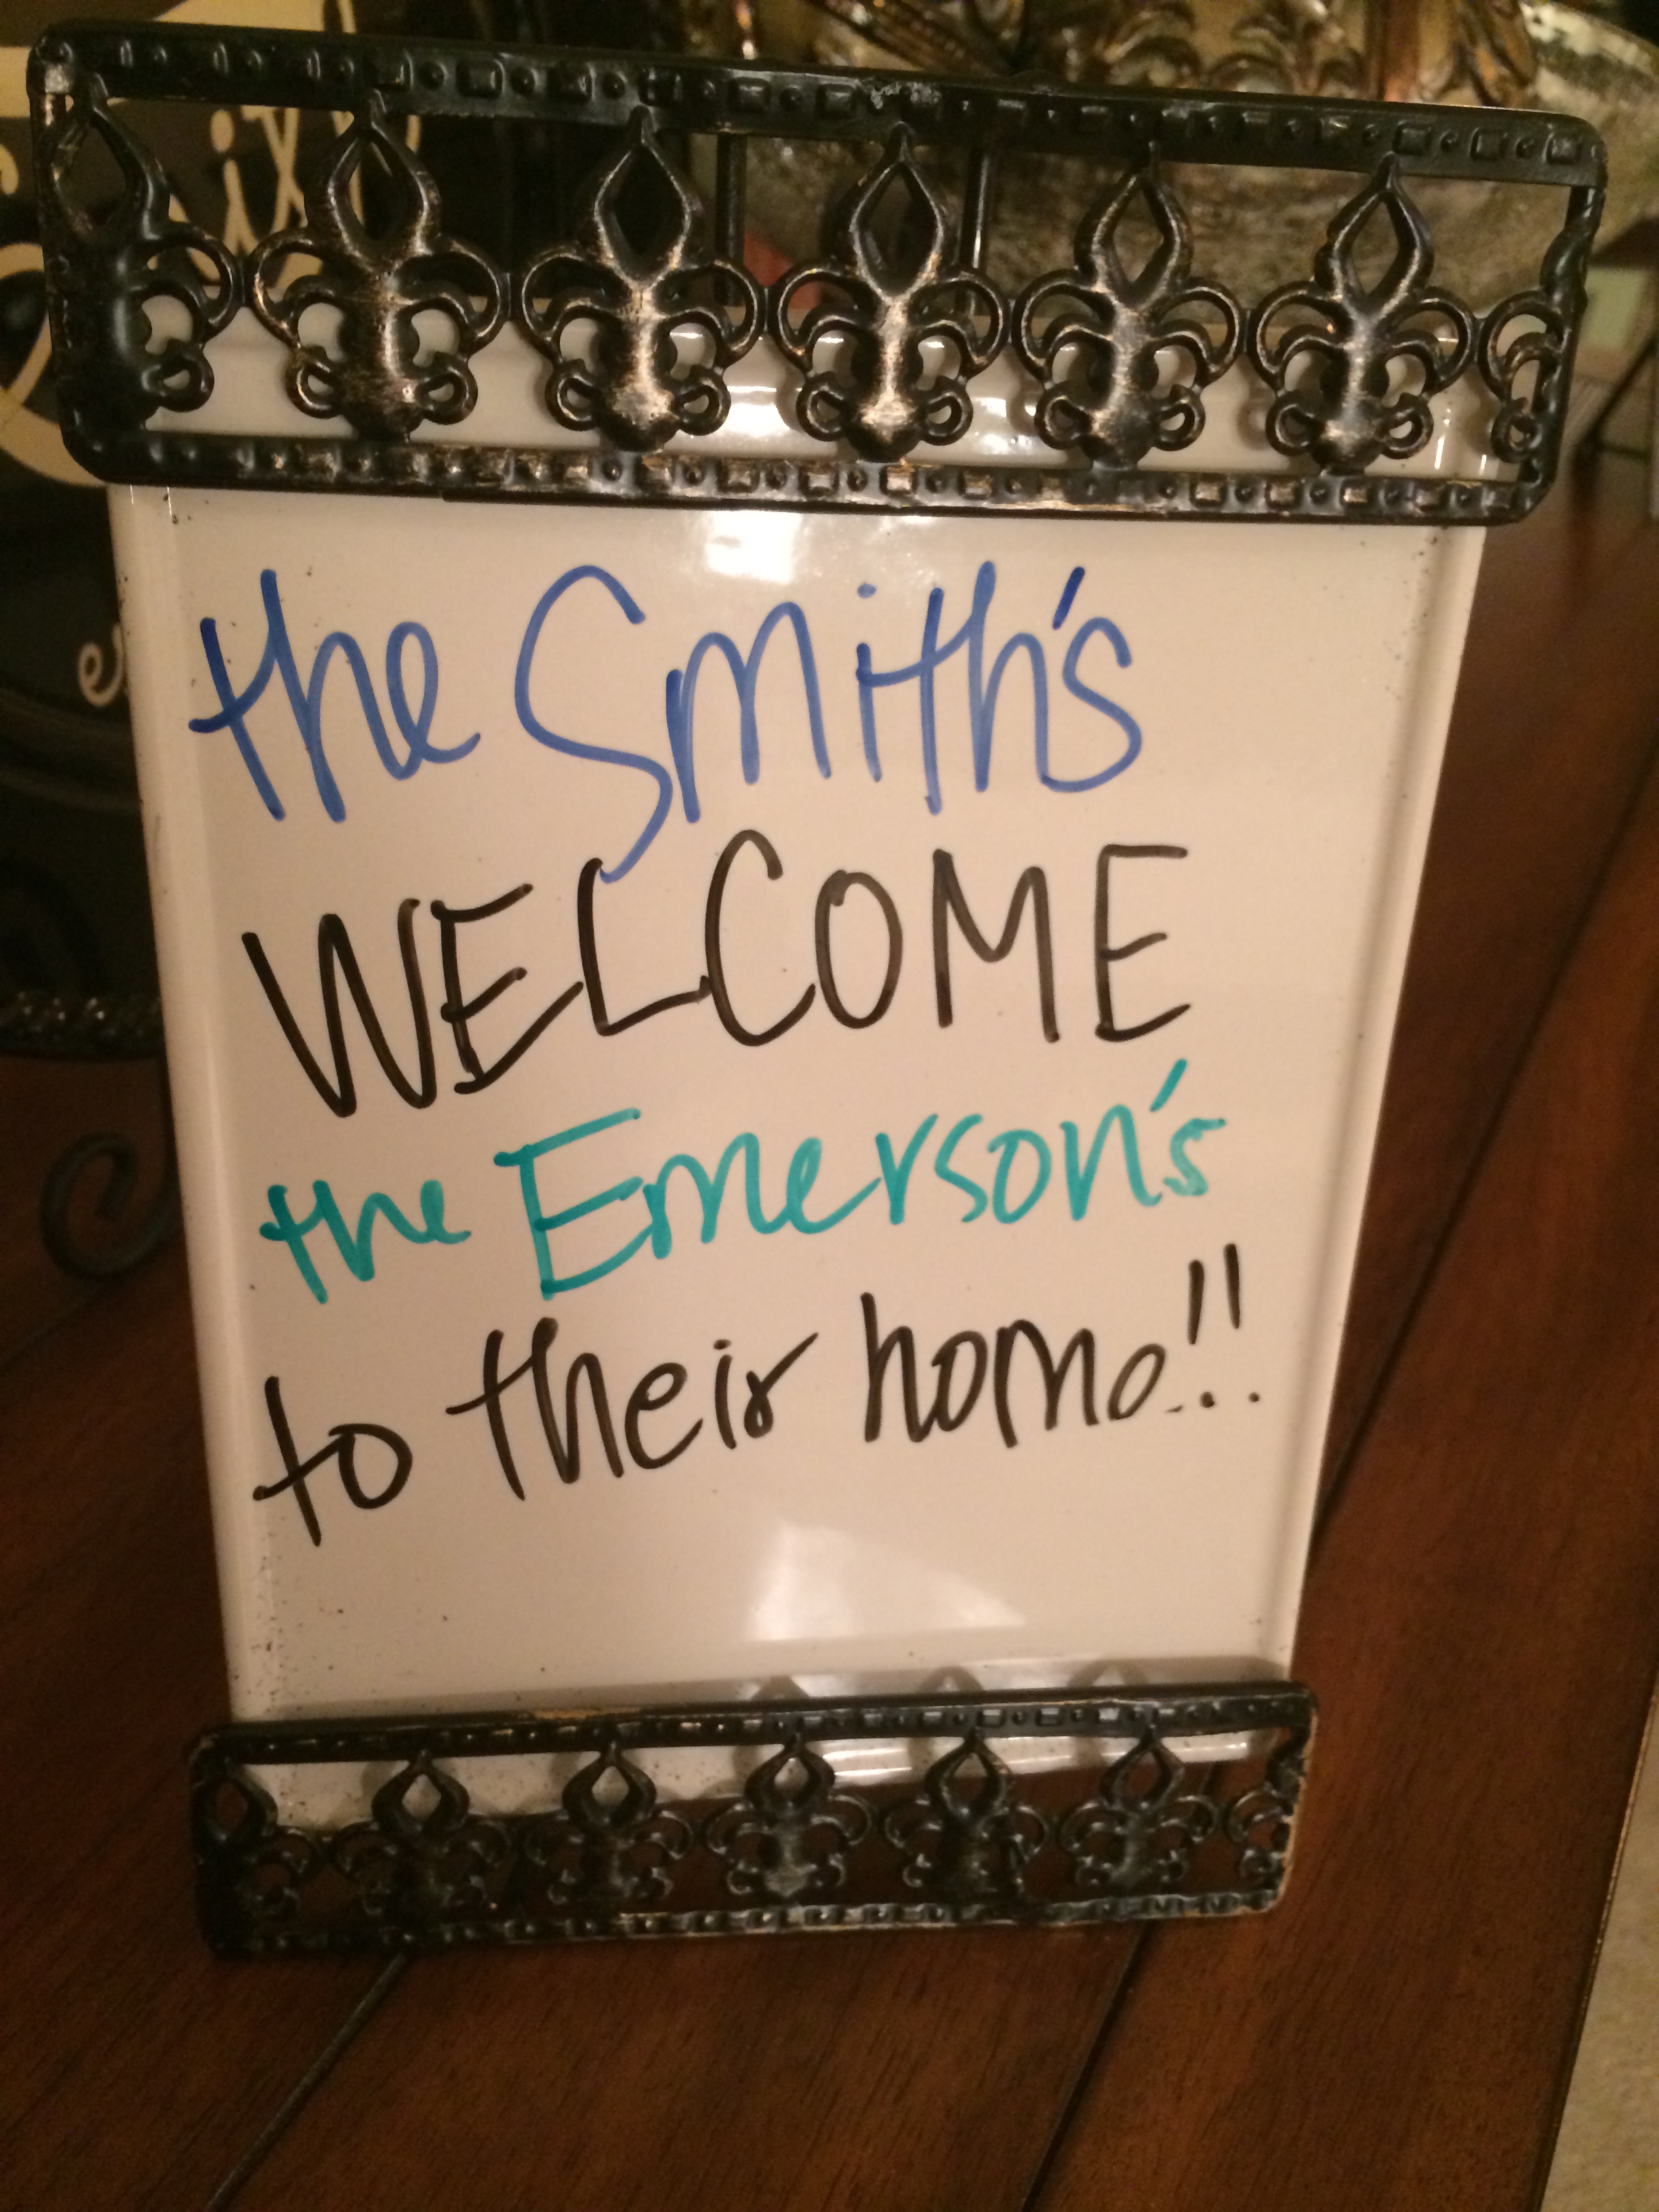 the Smith's
WELCOME
the Emerson's
to their home!!